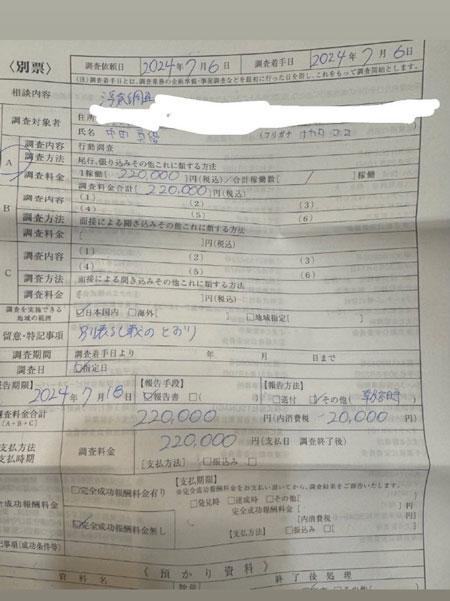 〈別票〉
調査依頼日 2024年7月6日 調査着手日 2024年7月6日
(注)調査着手日とは、調査業務の企画準備・事前調査などを最初に行った日を指し、これをもって調査開始とします。
相談内容 浮気調査
調査対象者 住所
氏名 中田 (フリガナ ナカタ ココ
A 調査内容 行動調査
調査方法 尾行、張り込みその他これに類する方法
調査料金 1稼働[220,000]円(税込)/合計稼働数[ / ]稼働
調査料金合計[220,000]円(税込)
B 調査内容 (1) (2) (3)
(4) (5) (6)
調査方法 面接による聞き込みその他これに類する方法
調査料金 [ ]円(税込)
C 調査内容 (1) (2) (3)
(4) (5) (6)
調査方法 面接による聞き込みその他これに類する方法
調査料金 [ ]円(税込)
調査を実施できる地域の範囲 ☑日本国内 □海外[ ] □地域指定[ ]
留意・特記事項 別表記載のとおり
調査期間 調査着手日より 年 月 日まで
調査日 ☑指定日
報告期限】 2024年7月18日 【報告手段】 ☑報告書 ( ) 【報告方法】 □送付 ☑その他(
調査料金合計 [A+B+C] 220,000円(内消費税 20,000円)
支払方法 支払時期 調査料金 220,000円(支払日 調査終了後)
[支払方法] □振込み □
完全成功報酬料金 □完全成功報酬料金有り
☑完全成功報酬料金無し
【支払期限】
※完全成功報酬料金をお支払い頂いてから、調査結果をご報告いたします。
□発見時 □達成時 □その他[ ]
完全成功報酬料金[ ]円
(内消費税 )円
【支払方法】 □振込み □
記事項(成功条件等)
《預かり資料》
資料名 数量 終了後処理